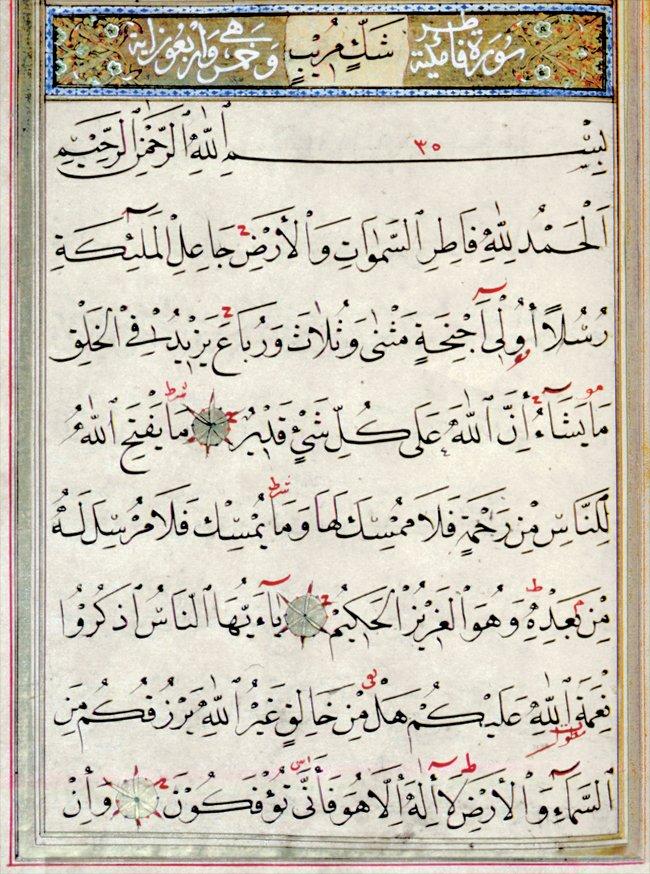 سورة فاطر مكية شَكٍّ مُرِيبٍ وهي خمس واربعون اية
بِسْمِ ٱللّٰهِ ٱلرَّحْمٰنِ ٱلرَّحِيمِ
٣٥
اَلْحَمْدُ لِلّٰهِ فَاطِرِ ٱلسَّمٰوَاتِ وَٱلْأَرْضِ جَاعِلِ ٱلْمَلٰئِكَةِ
رُسُلًا أُولِى أَجْنِحَةٍ مَثْنٰى وَثُلَاثَ وَرُبَاعَ يَزِيدُ فِى ٱلْخَلْقِ
مَا يَشَاءُ إِنَّ ٱللّٰهَ عَلٰى كُلِّ شَىْءٍ قَدِيرٌ مَا يَفْتَحِ ٱللّٰهُ
لِلنَّاسِ مِنْ رَحْمَةٍ فَلَا مُمْسِكَ لَهَا وَمَا يُمْسِكْ فَلَا مُرْسِلَ لَهُ
مِنْ بَعْدِهِ وَهُوَ ٱلْعَزِيزُ ٱلْحَكِيمُ يَاءَيُّهَا ٱلنَّاسُ ٱذْكُرُوا
نِعْمَةَ ٱللّٰهِ عَلَيْكُمْ هَلْ مِنْ خَالِقٍ غَيْرُ ٱللّٰهِ يَرْزُقُكُمْ مِنَ
ٱلسَّمَاءِ وَٱلْأَرْضِ لَا إِلٰهَ إِلَّا هُوَ فَأَنّٰى تُؤْفَكُونَ وَإِنْ